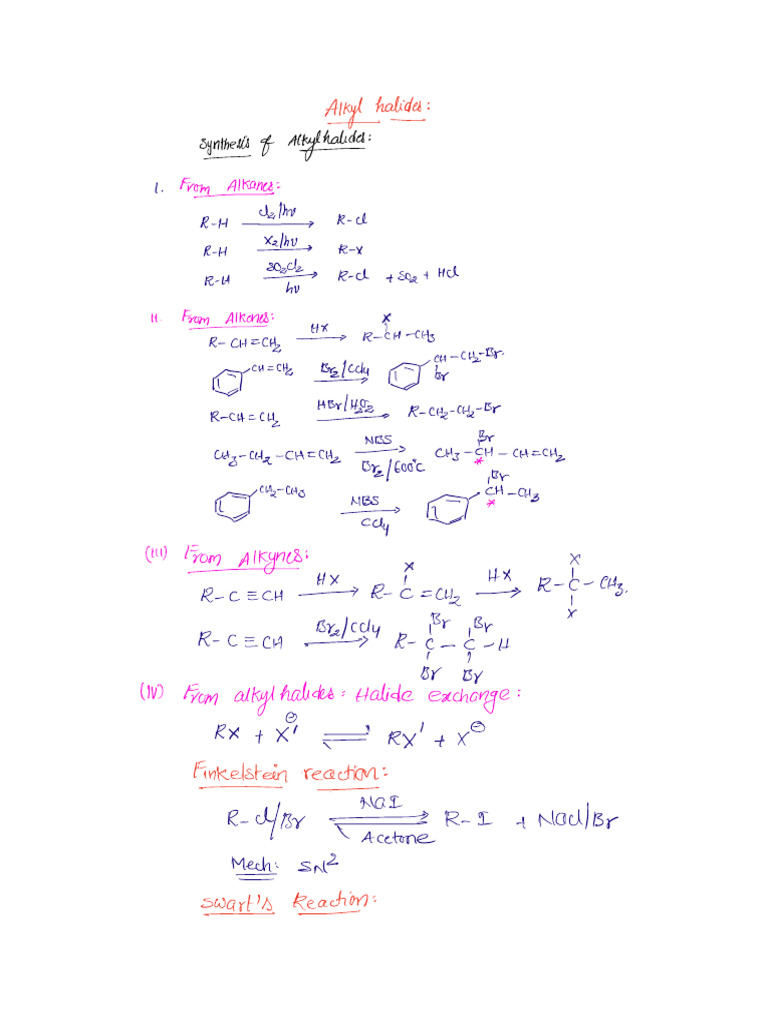 Alkyl halides:
Synthesis of Alkylhalides:
I. From Alkanes:
R-H Cl2/hν → R-Cl
R-H X2/hν → R-X
R-H SO2Cl2 hν → R-Cl + SO2 + HCl
II. From Alkenes:
R-CH=CH2 HX → R-CH-CH3 X
CH=CH2 Br2/CCl4 → CH-CH2-Br. Br
R-CH=CH2 HBr/H2O2 → R-CH2-CH2-Br
CH3-CH2-CH=CH2 NBS Br2/600°C → CH3-CH-CH=CH2 Br *
CH2-CH3 NBS CCl4 → CH-CH3 Br *
(III) From Alkynes:
R-C≡CH HX → R-C=CH2 X HX → R-C-CH3. X X
R-C≡CH Br2/CCl4 → R-C-C-H Br Br Br Br
(IV) From alkyl halides: Halide exchange:
RX + X'⊖ ⇌ RX' + X⊖
Finkelstein reaction:
R-Cl/Br NaI Acetone ⇌ R-I + NaCl/Br
Mech: SN2
Swart's Reaction: